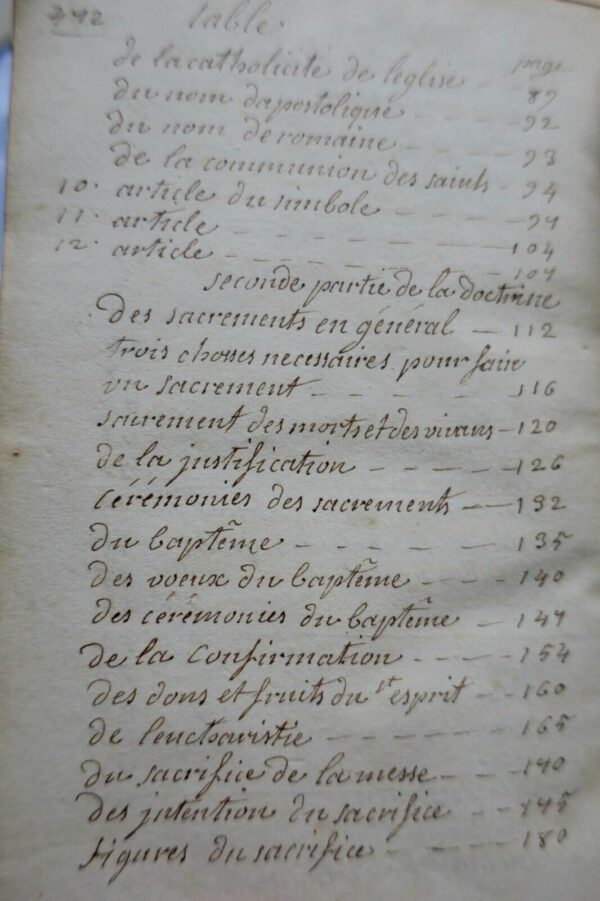 342 table
page
de la catholicité de leglise - 89
du nom dapostolique - - - 92
du nom de romaine - - - - 93
de la communion des saints - 94
10. article du simbole - - - - 97
11. article - - - - - 104
12. article - - - - - 107
seconde partie de la doctrine
des sacrements en général - 112
trois choses necessaires pour faire
un sacrement - - - - - 116
sacrement des morts et des vivans - 120
de la justification - - - - 126
cérémonies des sacrements - - 132
du baptême - - - - - - 135
des voeux du baptême - - - - 140
des cérémonies du baptême - - 147
de la Confirmation - - - - 154
des dons et fruits du st esprit - - 160
de leucharistie - - - - - 165
du sacrifice de la messe - - - 170
des intention du sacrifice - - - 175
figures du sacrifice - - - - 180